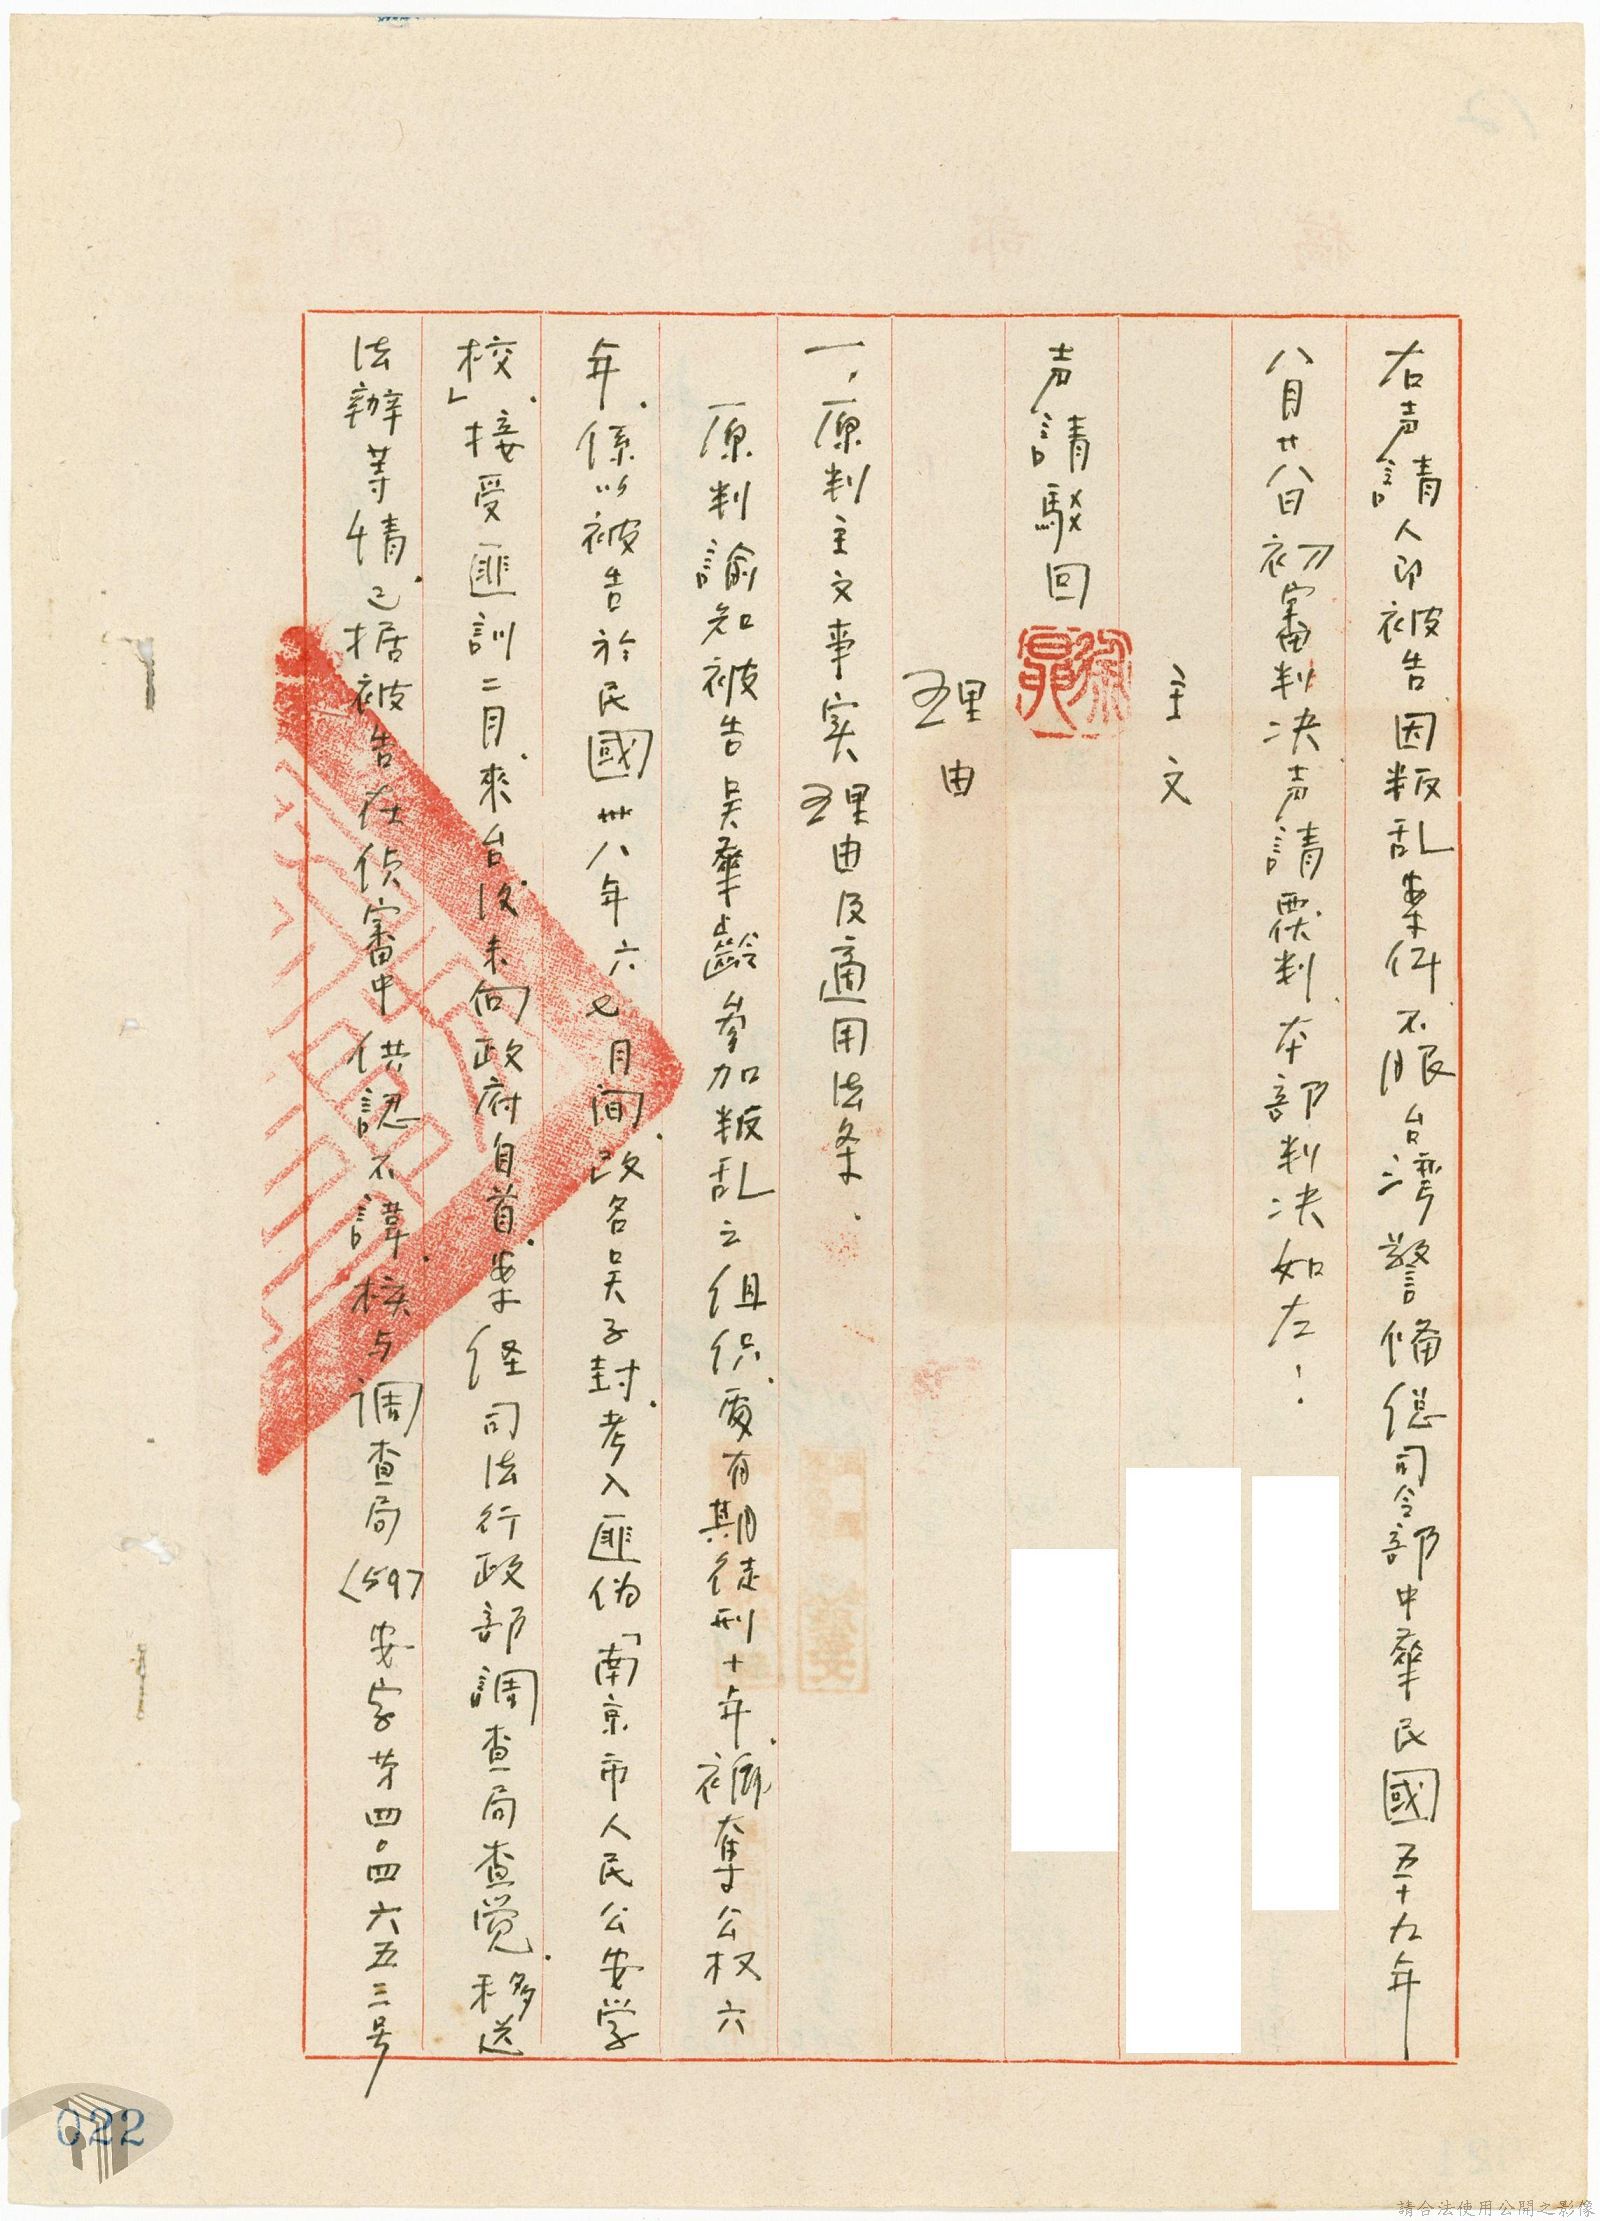 右声請人即被告因叛乱案件不服台湾警备总司令部中華民國五十九年
八月廿八日初審判决声請覆判本部判决如左：
主文
声請駁回
理由
一、原判主文事实理由及適用法条．
原判諭知被告吳華齡参加叛乱之组织處有期徒刑十年褫奪公权六
年係以被告於民國卅八年六七月间改名吳子封考入匪伪「南京市人民公安学
校」接受匪訓二月來台後未向政府自首案经司法行政部調查局查觉移送
法辦等情已据被告在偵審中供認不諱核与调查局(59)安字第四〇四六五三号
022
請合法使用公開之影像